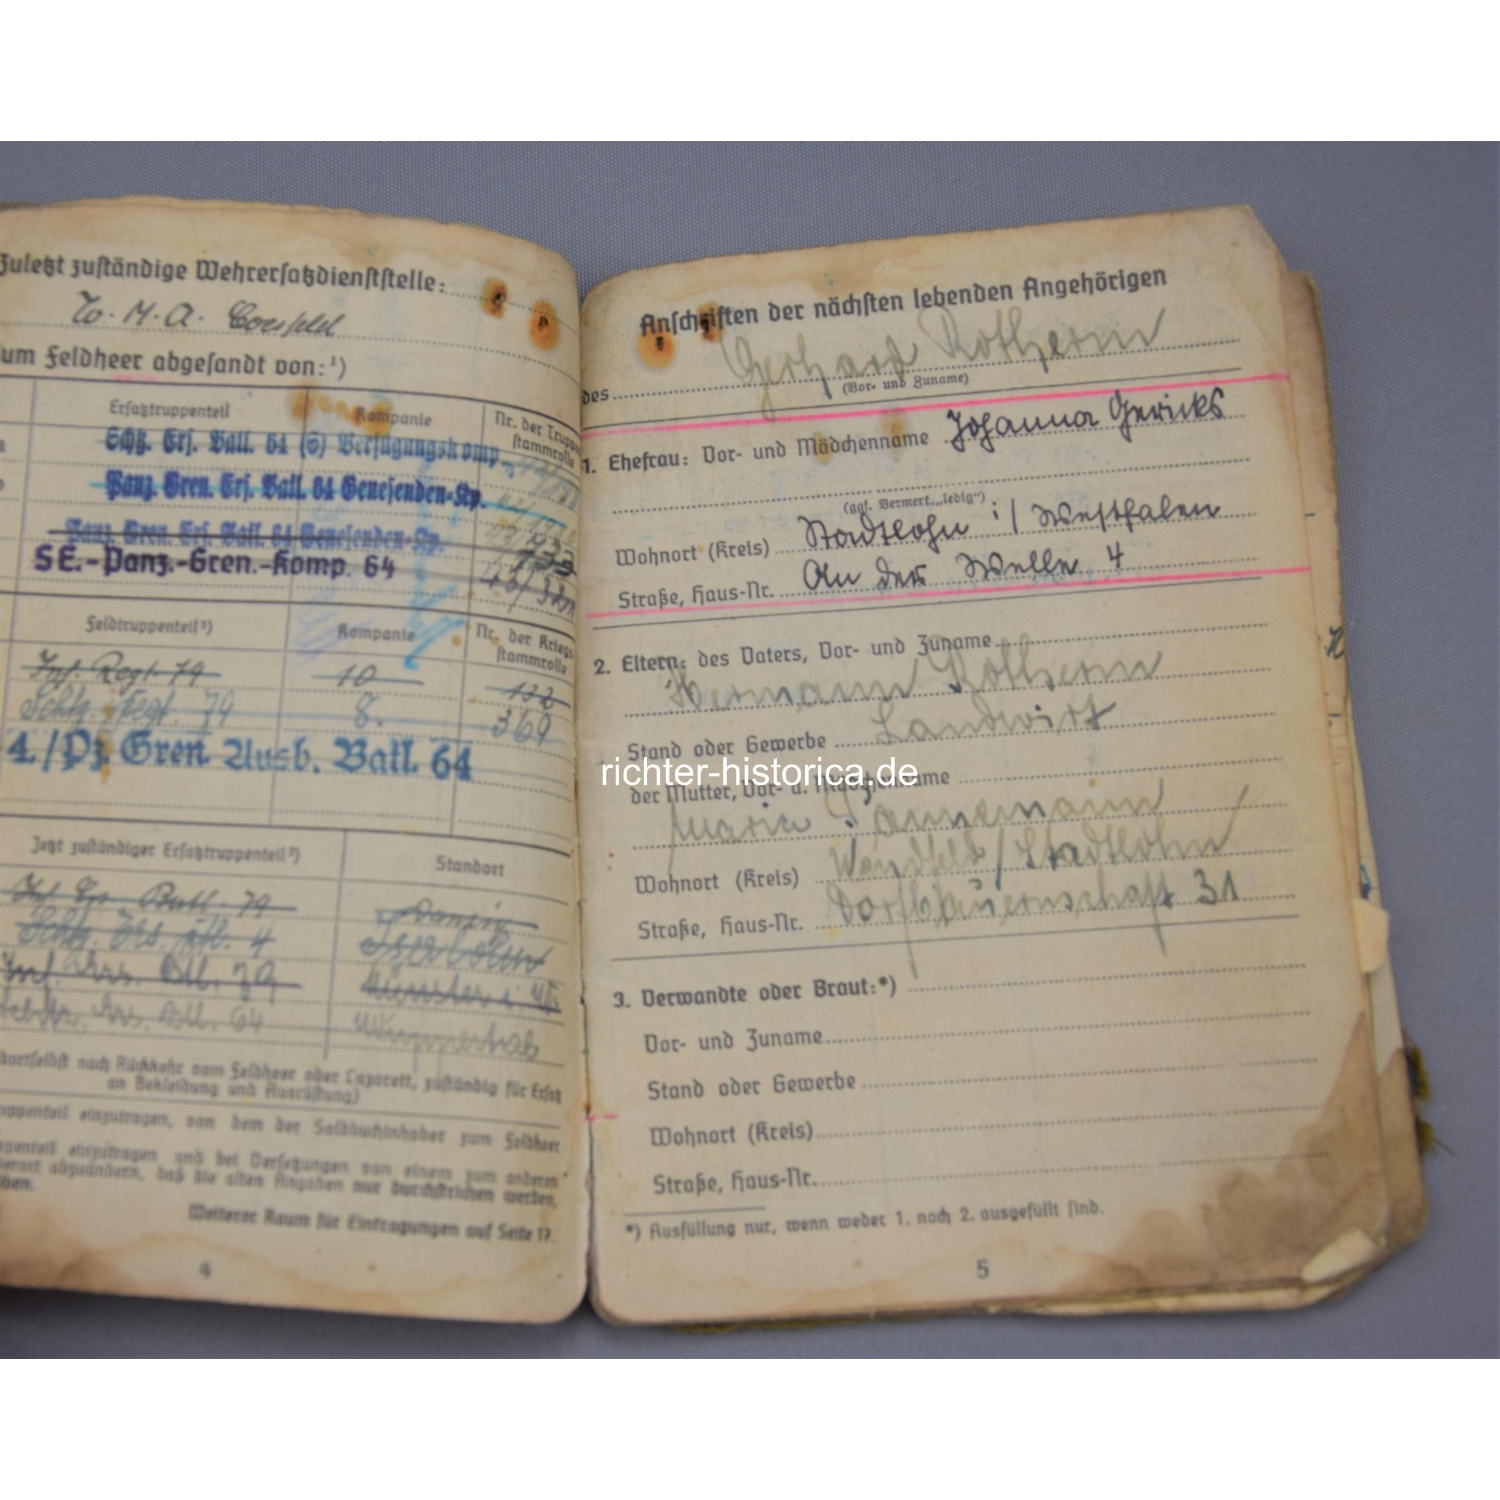 Zuletzt zuständige Wehrersatzdienststelle:
W. M. A. Coesfeld
zum Feldheer abgesandt von:¹)
Ersatztruppenteil Kompanie Nr. der Truppenstammrolle
Schtz. Ers. Batl. 64 (S) Verfügungskomp.
Panz. Gren. Ers. Batl. 64 Genesenden-Kp.
Panz. Gren. Ers. Batl. 64 Genesenden-Kp. 733
SE.-Panz.-Gren.-Komp. 64
Feldtruppenteil²) Kompanie Nr. der Kriegsstammrolle
Inf. Regt 79 10 132
Schtz. Regt. 79 8. 369
4./Pz. Gren. Ausb. Batl. 64
Jetzt zuständiger Ersatztruppenteil³) Standort
Inf. Ers. Batl. 79 Danzig
Schtz. Ers. Abt. 4 Iserlohn
Inf. Ers. Btl. 79 Münster i. W.
Ers. Btl. 64 Wuppertal
nach Rückkehr vom Feldheer oder Lazarett, zuständig für Ersatz
an Bekleidung und Ausrüstung)
einzutragen, von dem der Soldbuchinhaber zum Feldheer
einzutragen und bei Versetzungen von einem zum anderen
abzuändern, daß die alten Angaben nur durchstrichen werden,
Weiterer Raum für Eintragungen auf Seite 17.
4
Anschriften der nächsten lebenden Angehörigen
des Gerhard Rotherm
(Vor- und Zuname)
1. Ehefrau: Vor- und Mädchenname Johanna Gericks
(ggf. Vermerk „ledig")
Wohnort (Kreis) Stadtlohn i/ Westfalen
Straße, Haus-Nr. An der Welle 4
2. Eltern: des Vaters, Vor- und Zuname
Hermann Rotherm
Stand oder Gewerbe Landwirt
der Mutter, Vor- u. Mädchenname
Maria Tannemann
Wohnort (Kreis) Wendfeld/Stadtlohn
Straße, Haus-Nr. Dorfbauernschaft 31
3. Verwandte oder Braut:*)
Vor- und Zuname
Stand oder Gewerbe
Wohnort (Kreis)
Straße, Haus-Nr.
*) Ausfüllung nur, wenn weder 1. noch 2. ausgefüllt sind.
5
richter-historica.de